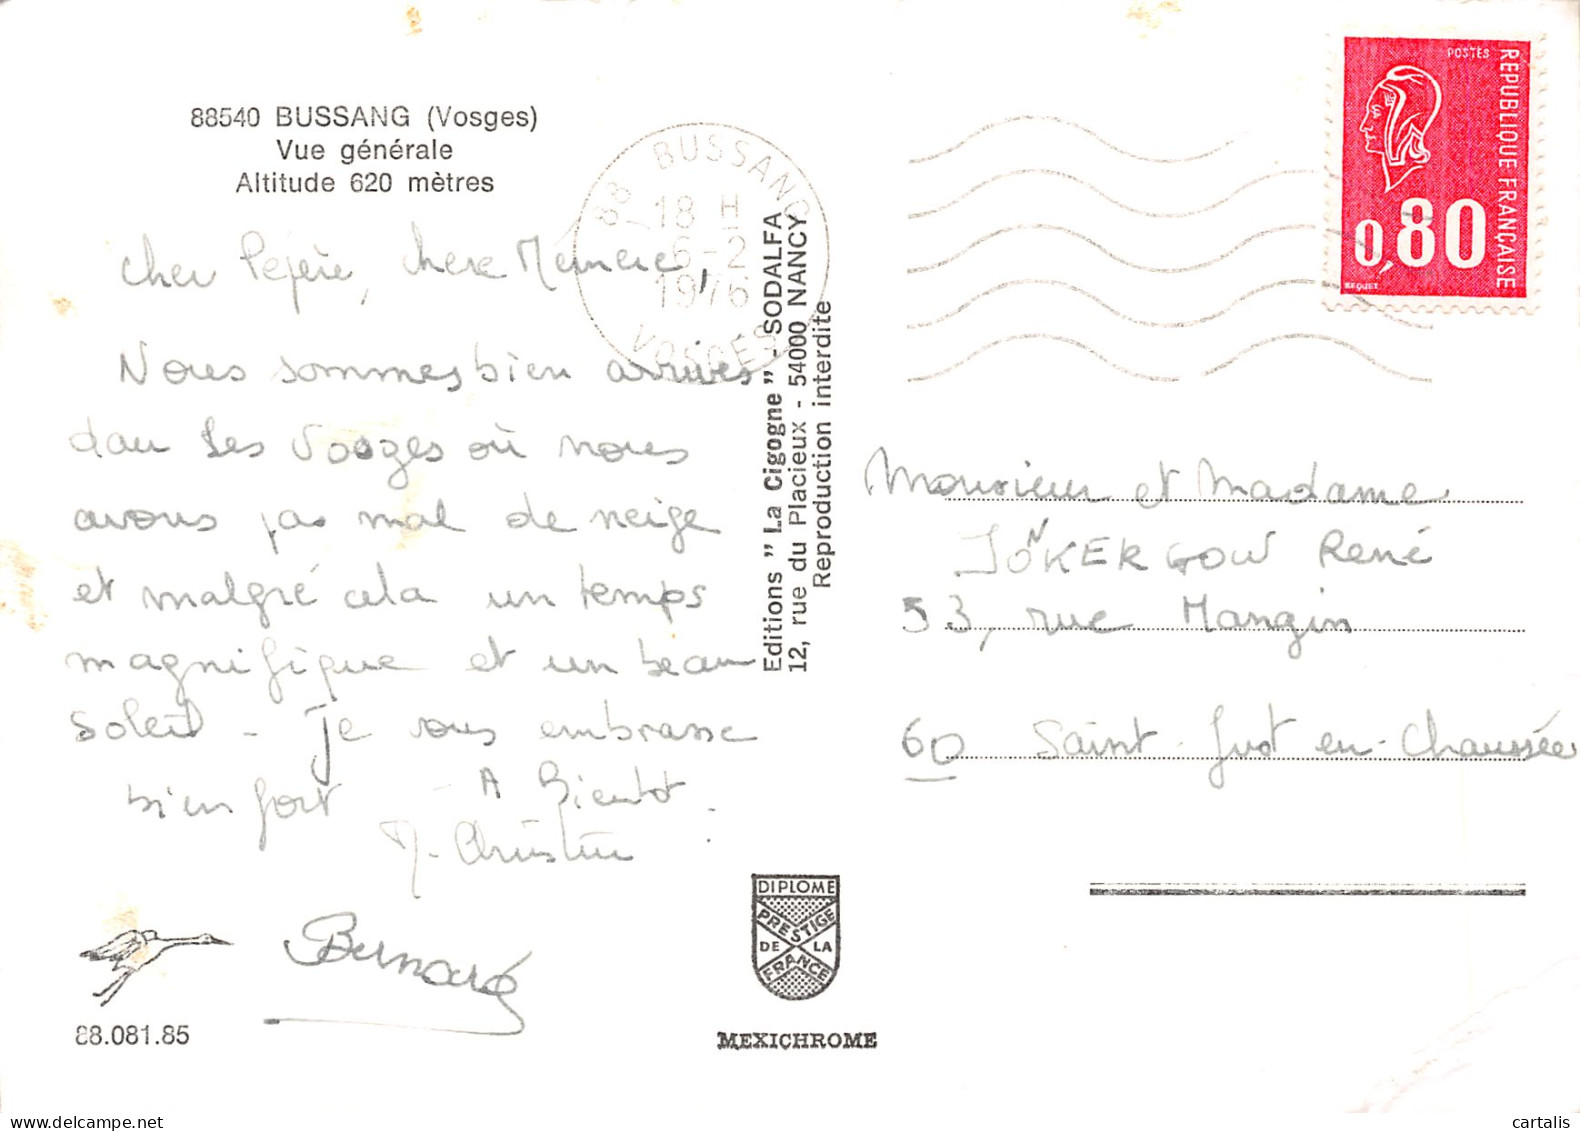 88540 BUSSANG (Vosges)
Vue générale
Altitude 620 mètres
88 BUSSANG
18 H
6-2
1976
VOSGES
POSTES
REPUBLIQUE FRANÇAISE
0,80
BEQUET
Cher Pépère, chere Mémère,
Nous sommes bien arrivés
dans Les Vosges où nous
avons pas mal de neige
et malgré cela un temps
magnifique et un beau
soleil - Je vous embrasse
bien fort - A Bientot.
M-Christine
Bernard
88.081.85
Editions " La Cigogne " - SODALFA
12, rue du Placieux - 54000 NANCY
Reproduction interdite
DIPLOME
PRESTIGE
DE LA
FRANCE
MEXICHROME
Monsieur et Madame
JONKERGOUW René
53, rue Mangin
60 Saint-Just en-Chaussée
cartalis